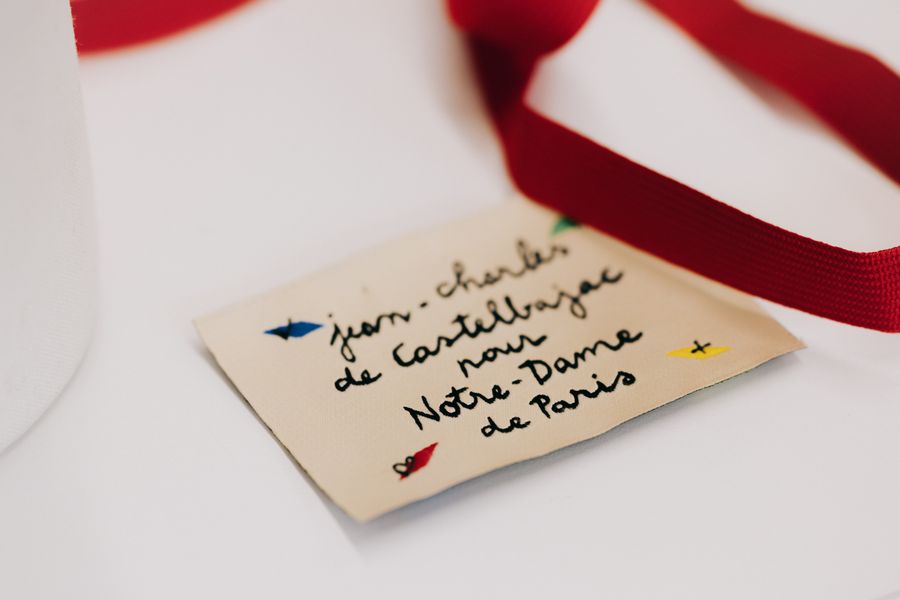 jean-charles
de Castelbajac
pour
Notre-Dame
de Paris